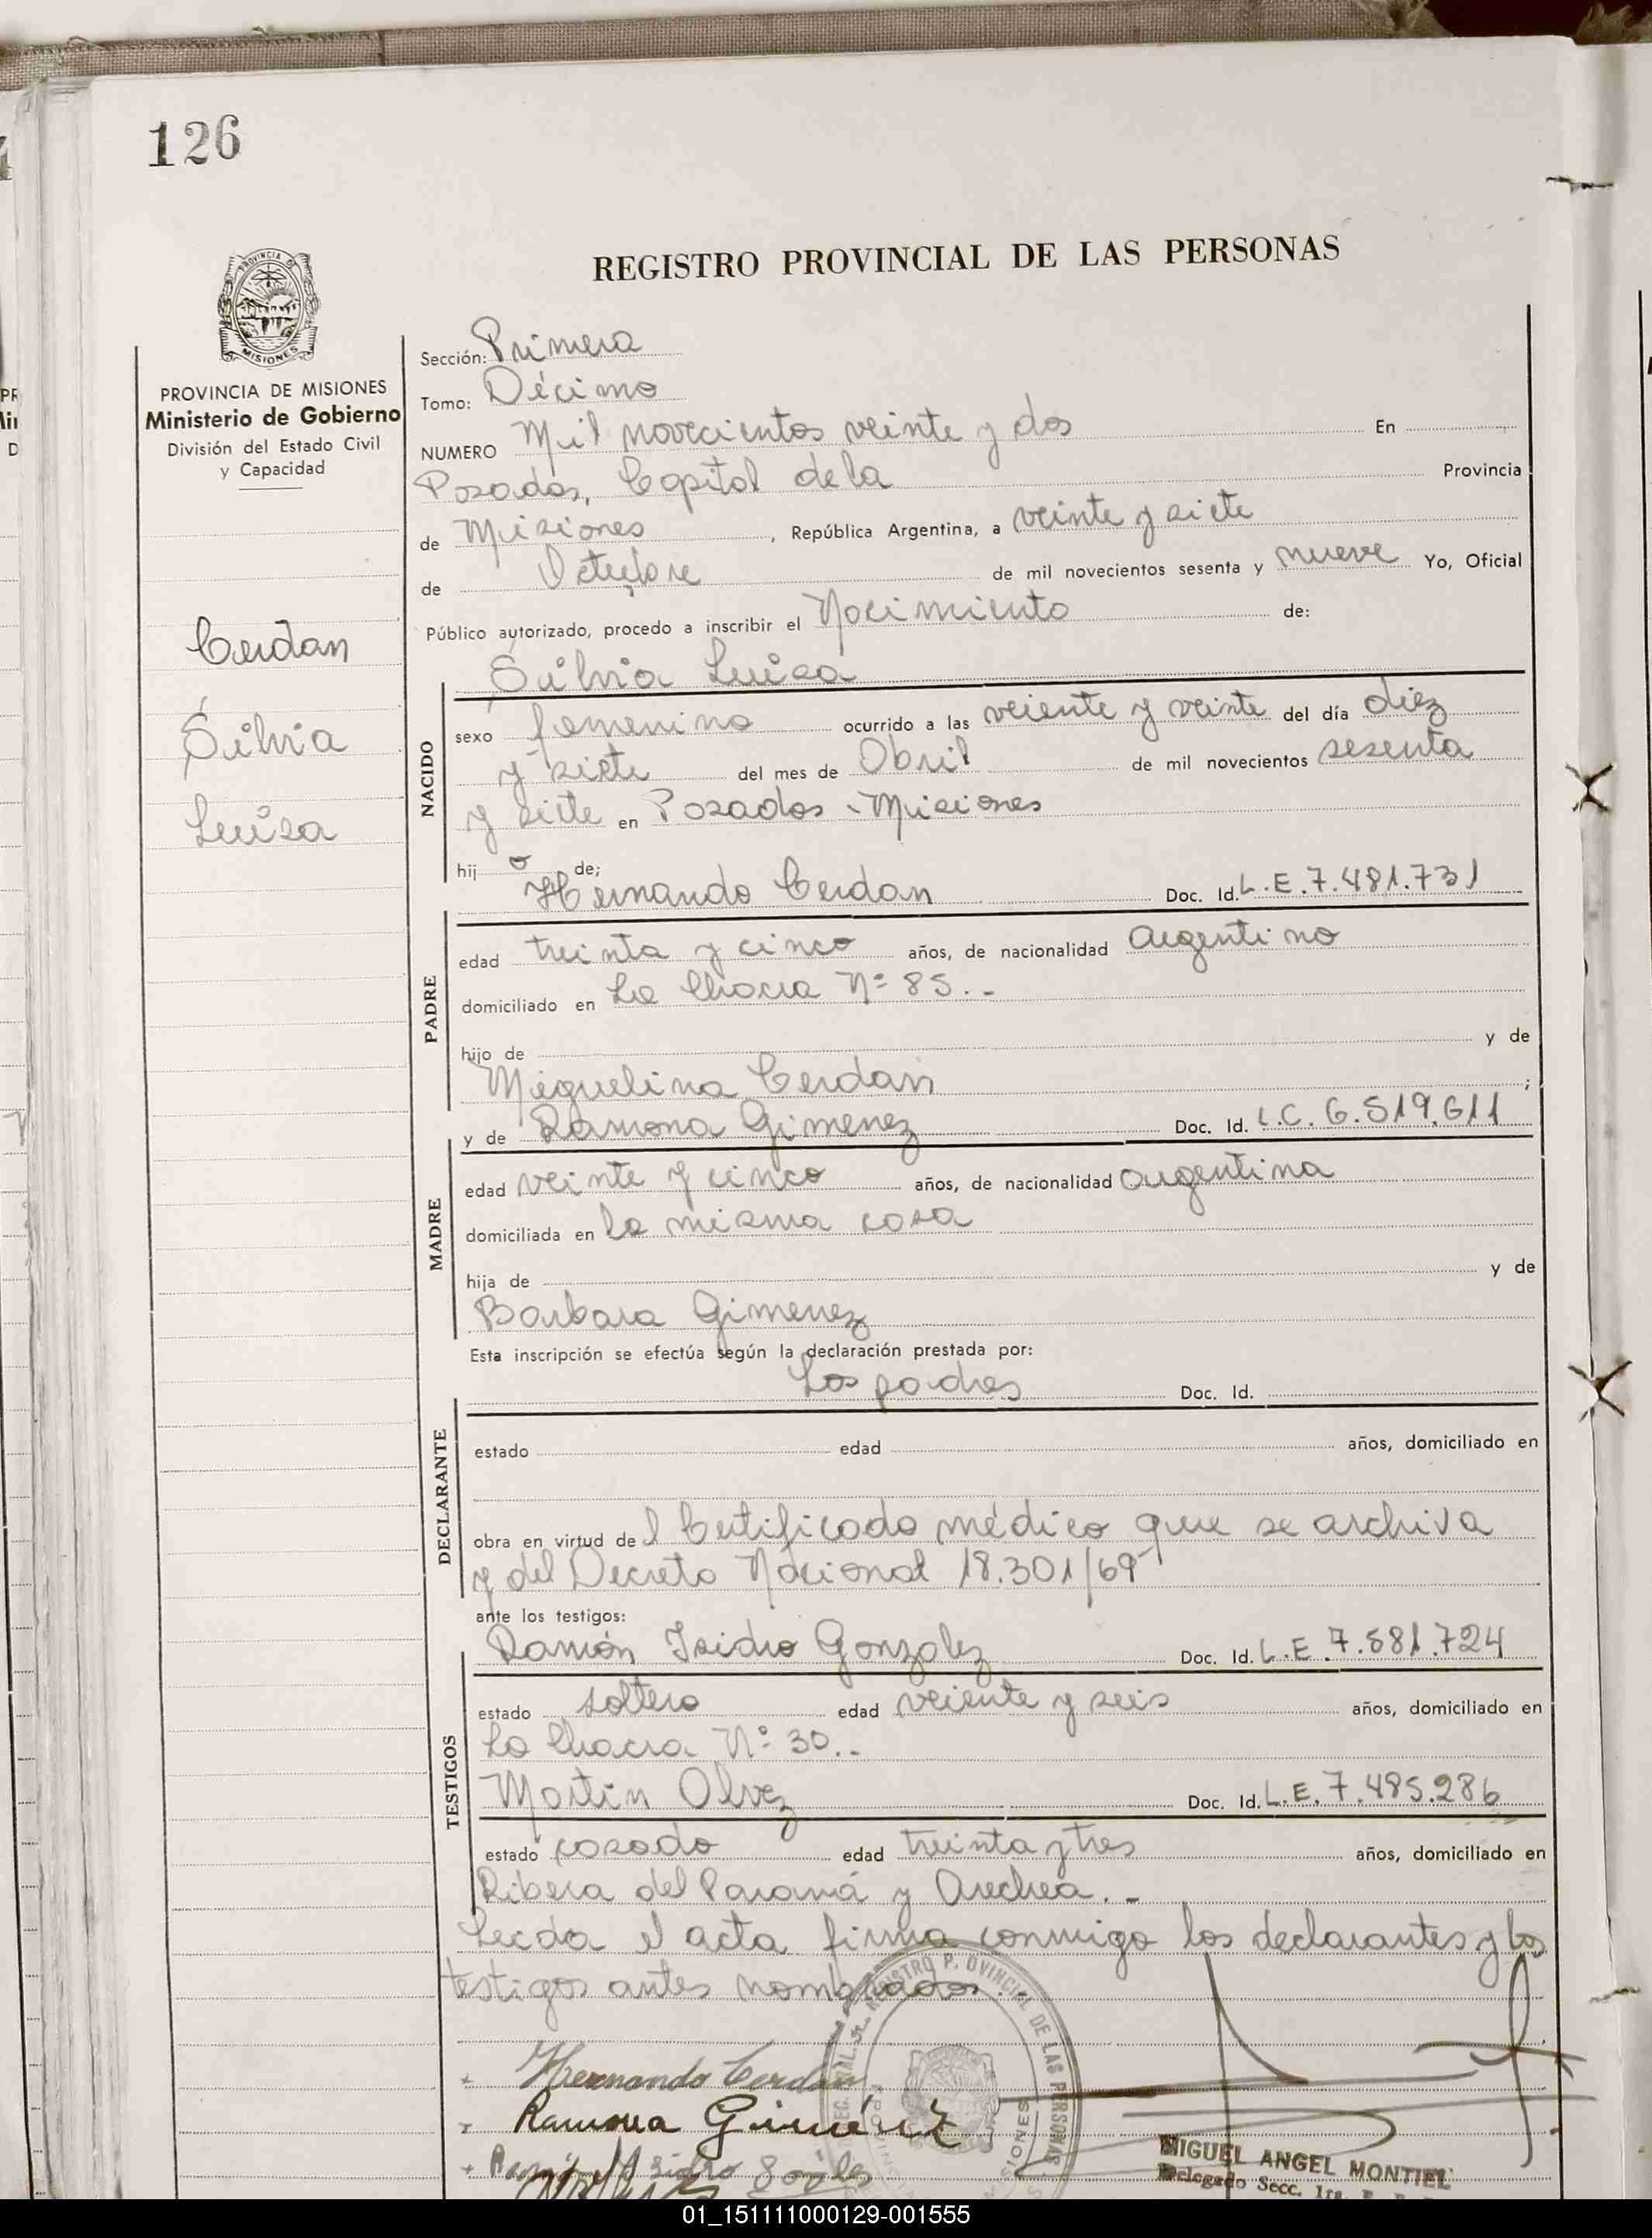 126
REGISTRO PROVINCIAL DE LAS PERSONAS
PROVINCIA DE MISIONES
Ministerio de Gobierno
División del Estado Civil
y Capacidad
Cerdan
Silvia
Luisa
Sección: Primera
Tomo: Décimo
NUMERO Mil novecientos veinte y dos En
Posadas, Capital de la Provincia
de Misiones, República Argentina, a veinte y siete
de Octubre de mil novecientos sesenta y nueve Yo, Oficial
Público autorizado, procedo a inscribir el Nacimiento de:
Silvia Luisa
NACIDO
sexo femenino ocurrido a las veiente y veinte del día diez
y siete del mes de Abril de mil novecientos sesenta
y siete en Posadas - Misiones
hij a de;
Hernando Cerdan Doc. Id. L.E. 7.481.731
PADRE
edad treinta y cinco años, de nacionalidad argentino
domiciliado en La Chacra Nº 85.-
hijo de y de
Miguelina Cerdan ;
y de Ramona Gimenez Doc. Id. L.C. 6.519.611
MADRE
edad veinte y cinco años, de nacionalidad argentina
domiciliada en la misma casa
hija de y de
Barbara Gimenez
Esta inscripción se efectúa según la declaración prestada por:
Los padres Doc. Id.
DECLARANTE
estado edad años, domiciliado en
obra en virtud del Certificado médico que se archiva
y del Decreto Nacional 18.301/69
ante los testigos:
Ramón Isidro Gonzalez Doc. Id. L.E. 7.581.724
TESTIGOS
estado soltero edad veiente y seis años, domiciliado en
La Chacra Nº 30.-
Martin Olvez Doc. Id. L.E. 7.485.286
estado casado edad treinta y tres años, domiciliado en
Ribera del Paraná y Arechea.-
Leida el acta firma conmigo los declarantes y los
testigos antes nombrados.-
Hernando Cerdan
Ramona Giménez
REGISTRO P. OVINCIAL DE LAS PERSONAS
MIGUEL ANGEL MONTIEL
Delegado Secc. 1ra.
01_151111000129-001555